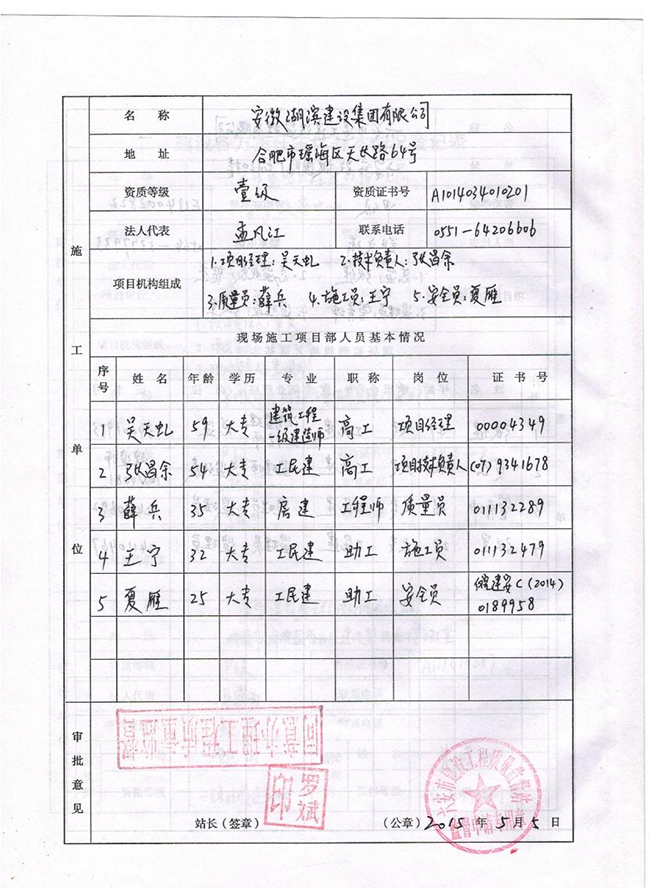 名 称 安徽湖滨建设集团有限公司
地 址 合肥市瑶海区天长路64号
资质等级 壹级 资质证书号 A1014034010201
法人代表 孟凡江 联系电话 0551-64206606
项目机构组成 1.项目经理:吴天虬 2.技术负责人:张昌余
3.质量员:薛兵 4.施工员:王宁 5.安全员:夏雁
施工单位
现场施工项目部人员基本情况
序号 姓名 年龄 学历 专业 职称 岗位 证书号
1 吴天虬 59 大专 建筑工程一级建造师 高工 项目经理 00004349
2 张昌余 54 大专 工民建 高工 项目技术负责人 (07)9341678
3 薛兵 35 大专 房建 工程师 质量员 011132289
4 王宁 32 大专 工民建 助工 施工员 011132479
5 夏雁 25 大专 工民建 助工 安全员 皖建安C(2014)0189958
审批意见
同意办理工程质量监督
罗斌印
站长(签章) (公章) 2015 年 5 月 5 日